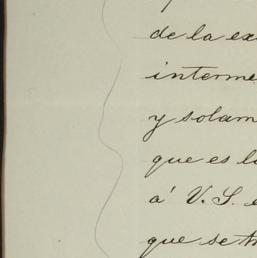 de la ex
interme
y solam
que es la
á V. S. e
que se tr